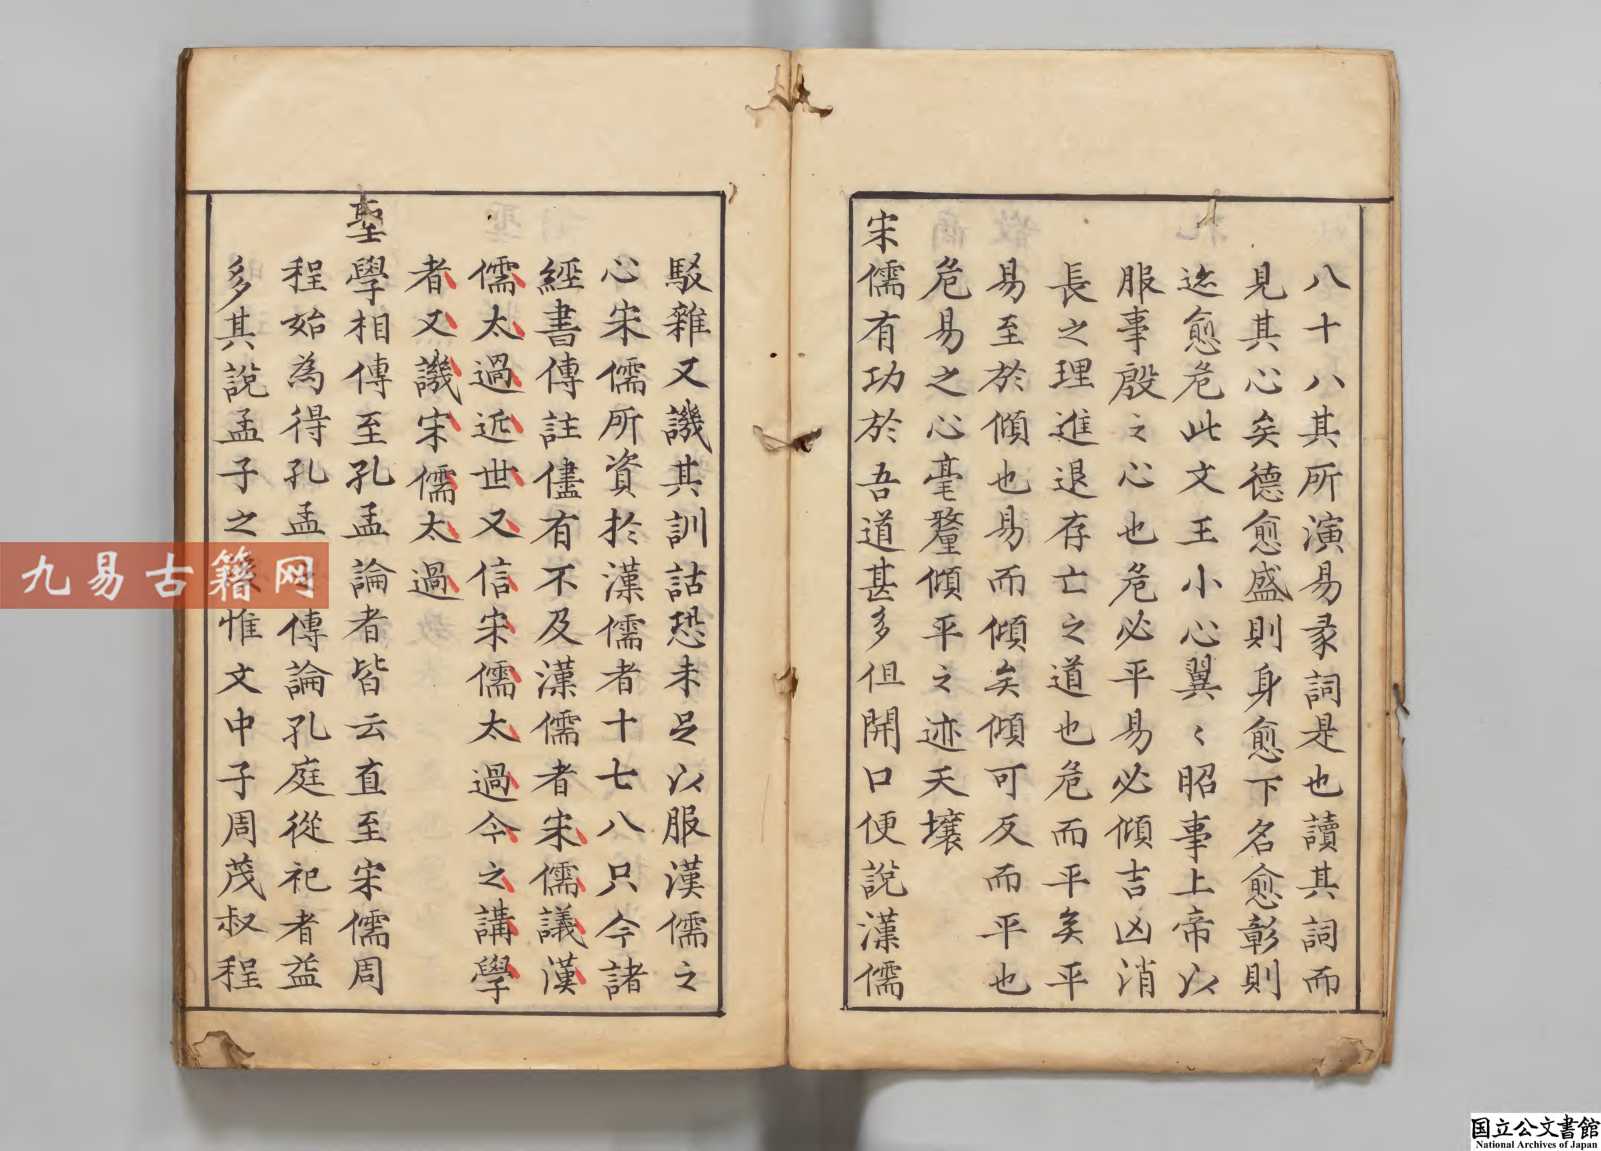 八十八其所演易彖詞是也讀其詞而
見其心矣德愈盛則身愈下名愈彰則
迹愈危此文王小心翼〻昭事上帝以
服事殷之心也危必平易必傾吉凶消
長之理進退存亡之道也危而平矣平
易至於傾也易而傾矣傾可反而平也
危易之心毫釐傾平之迹天壤
宋儒有功於吾道甚多但開口便説漢儒
駁雜又譏其訓詁恐未足以服漢儒之
心宋儒所資於漢儒者十七八只今諸
經書傳註儘有不及漢儒者宋儒議漢
儒太過近世又信宋儒太過今之講學
者又譏宋儒太過
聖學相傳至孔孟論者皆云直至宋儒周
程始為得孔孟傳論孔庭從祀者益
多其説孟子之惟文中子周茂叔程
九易古籍网
国立公文書館
National Archives of Japan